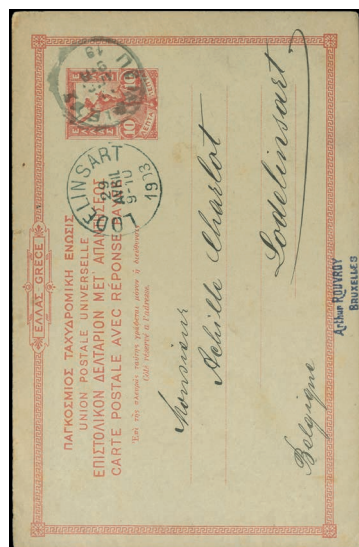 ΕΛΛΑΣ GRÈCE
ΠΑΓΚΟΣΜΙΟΣ ΤΑΧΥΔΡΟΜΙΚΗ ΕΝΩΣΙΣ
UNION POSTALE UNIVERSELLE
ΕΠΙΣΤΟΛΙΚΟΝ ΔΕΛΤΑΡΙΟΝ ΜΕΤ' ΑΠΑΝΤΗΣΕΩΣ
CARTE POSTALE AVEC RÉPONSE PAYÉE
Côté réservé à l'adresse.
10 10
LODELINSART
29
AVRIL
9-10
1903
Monsieur
Achille Charlot
Lodelinsart
Belgique
Arthur ROUVROY
BRUXELLES